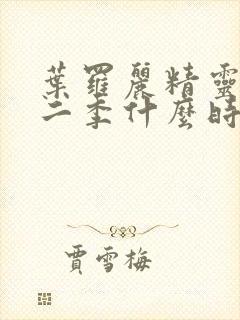 葉羅麗精靈
二季什麼時
賈雪梅